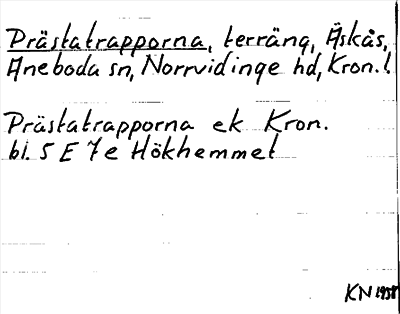 Prästatrapporna, terräng, Äskås,
Aneboda sn, Norrvidinge hd, Kron. l.
Prästatrapporna ek Kron.
bl. 5 E 7 e Hökhemmet
KN 1958